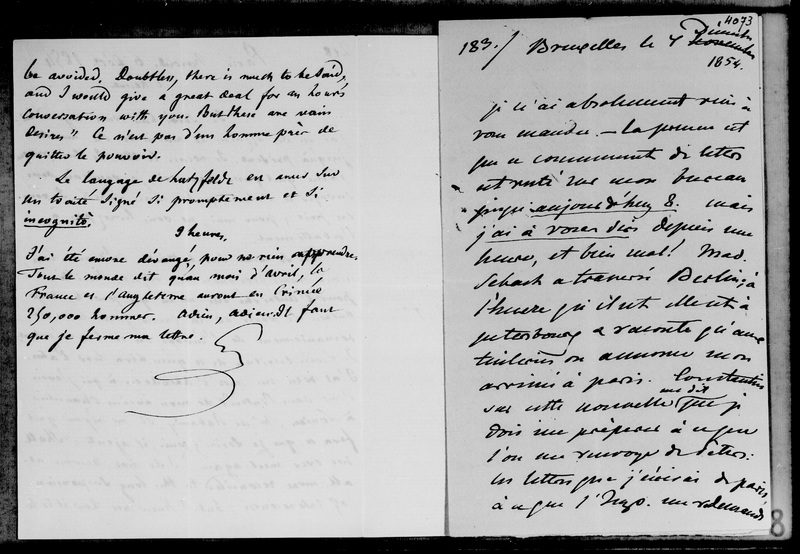 be avoided. Doubtless, there is much to be said,
and I would give a great deal for an hour's
conversation with you. But these are vain
desires" Ce n'est pas d'un homme près de
quitter le pouvoir.
Le langage de hatzfeldt en anus sur
un traité signé si promptement et si
incognitò.
9 heures.
J'ai été encore dérangé, pour ne rien apprendre.
Tout le monde dit qu'au mois d'avril, la
France et l'angleterre auront en Crimée
250,000 hommes. adieu, adieu. Il faut
que je ferme ma lettre.
4073
183./ Bruxelles le 4 Decembre
1854.
je n'ai absolument rien à
vous mander. – la preuve est
que ce commencement de lettre
est resté sur mon bureau
jusqu'aujourd'huy 8. mais
j'ai à vous dire depuis une
heure, et bien mal! Mad.
Sebach a traversé Berlin, à
l'heure qu'il est elle est à
petersbourg a raconté qu'aux
tuileries on annonce mon
arrivée à paris. Constantin
sur cette nouvelle me dit que je
dois me préparer à ce que
l'on me renvoye de
les lettres que j'écrirai de paris,
à ce que l'Emp. me redemande
8